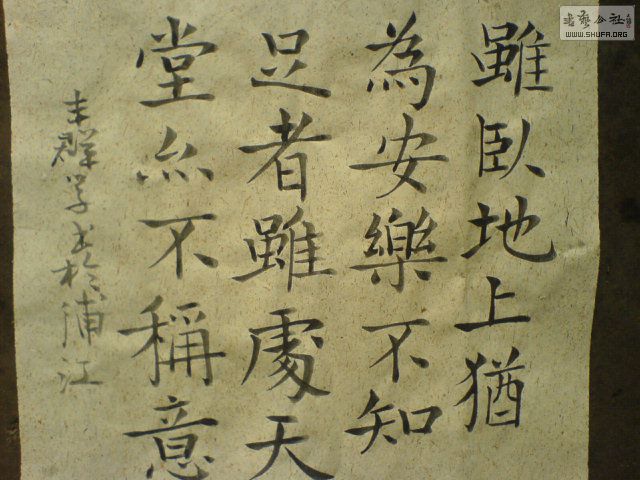 雖臥地上猶
為安樂不知
足者雖處天
堂亦不稱意
丰群學书於浦江
书艺公社
WWW.SHUFA.ORG